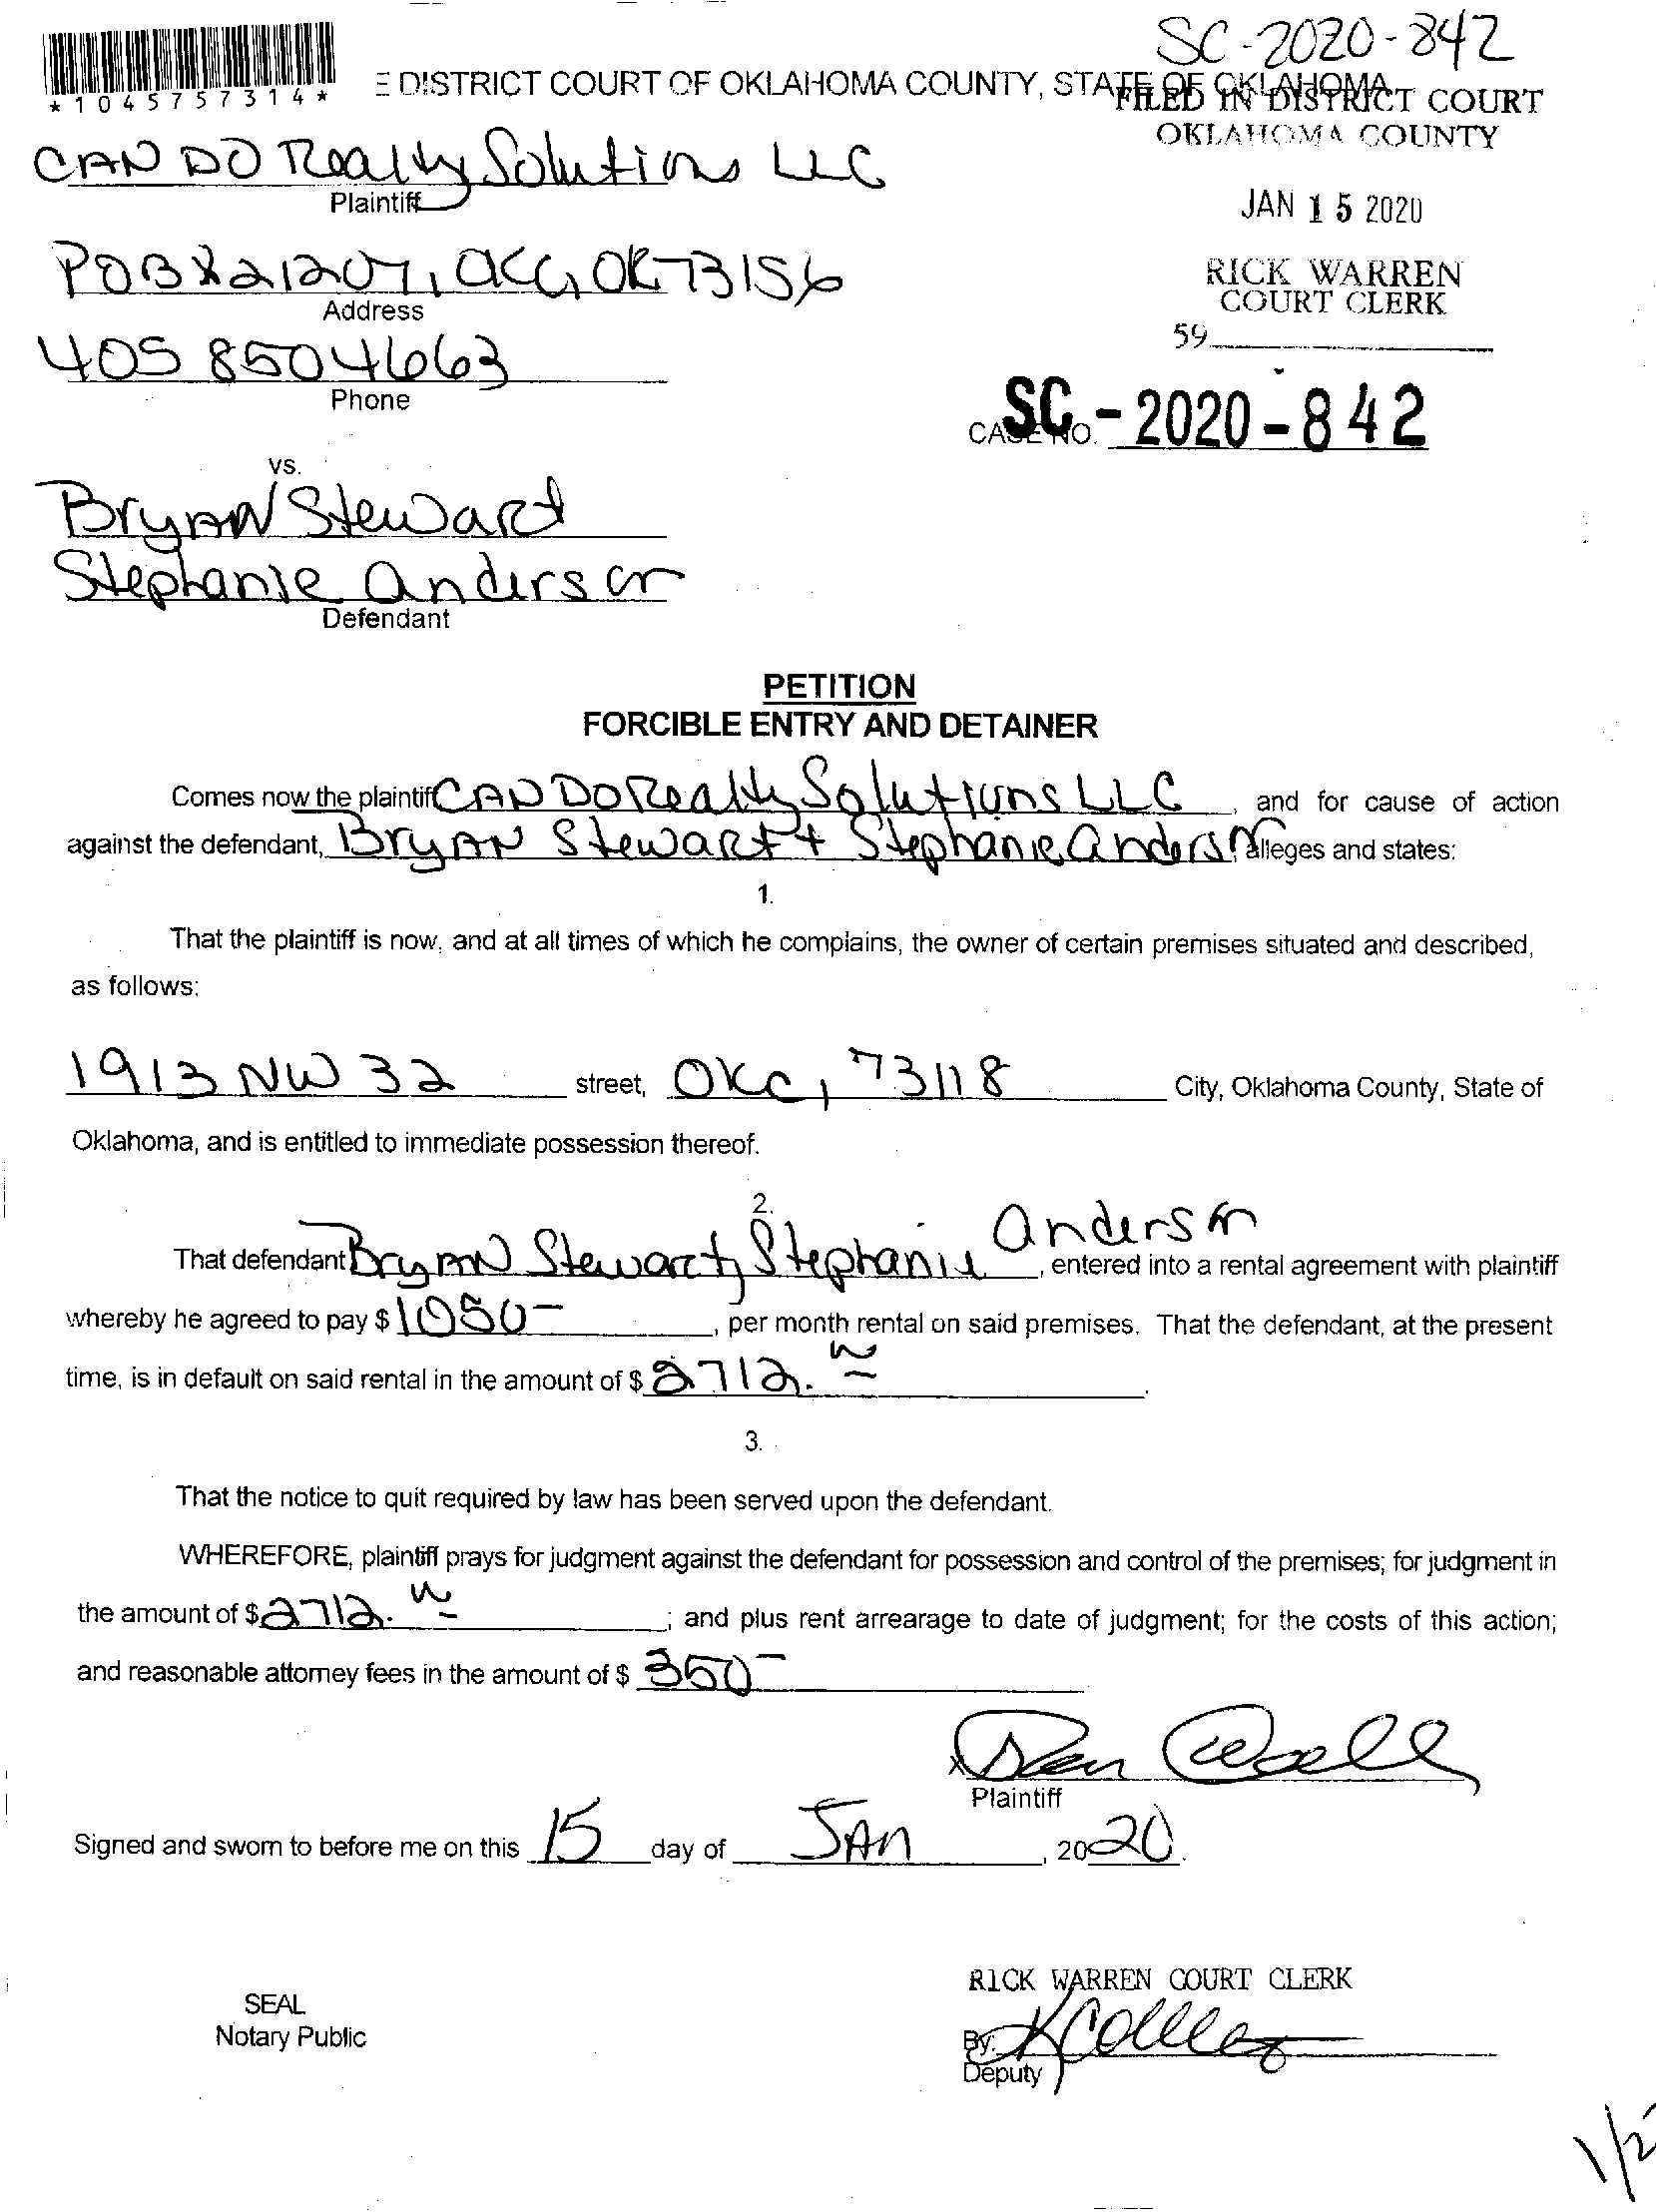 SC-2020-842
*1045757314*
E DISTRICT COURT OF OKLAHOMA COUNTY, STATE OF OKLAHOMA
FILED IN DISTRICT COURT
OKLAHOMA COUNTY
CAN DO Realty Solutions LLC
Plaintiff
JAN 15 2020
POBX21207, OKC, OK 73156
Address
RICK WARREN
COURT CLERK
59
405 8504663
Phone
CASE NO. SC-2020-842
vs.
Bryan Stewart
Stephanie Anderson
Defendant
PETITION
FORCIBLE ENTRY AND DETAINER
Comes now the plaintiff CAN DO Realty Solutions LLC, and for cause of action
against the defendant, Bryan Stewart + Stephanie Anderson, alleges and states:
1.
That the plaintiff is now, and at all times of which he complains, the owner of certain premises situated and described,
as follows:
1913 NW 32 street, OKC, 73118 City, Oklahoma County, State of
Oklahoma, and is entitled to immediate possession thereof.
2.
That defendant Bryan Stewart, Stephanie Anderson, entered into a rental agreement with plaintiff
whereby he agreed to pay $ 1050-, per month rental on said premises. That the defendant, at the present
time, is in default on said rental in the amount of $ 2712.
3.
That the notice to quit required by law has been served upon the defendant.
WHEREFORE, plaintiff prays for judgment against the defendant for possession and control of the premises; for judgment in
the amount of $ 2712. ; and plus rent arrearage to date of judgment; for the costs of this action;
and reasonable attorney fees in the amount of $ 350-
x
Plaintiff
Signed and sworn to before me on this 15 day of JAN, 2020.
RICK WARREN COURT CLERK
SEAL
Notary Public
By:
Deputy